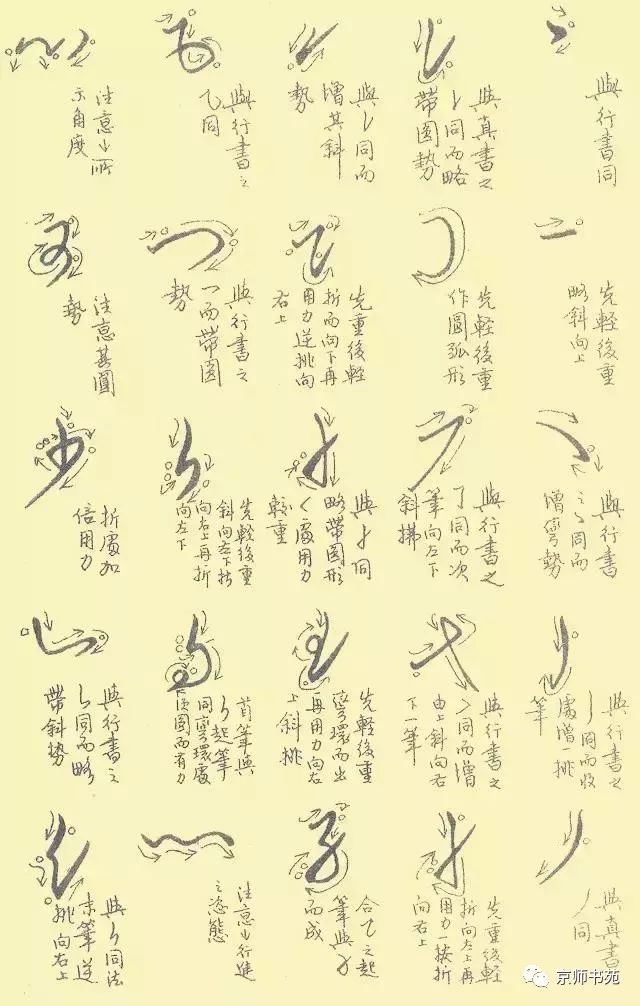 與行書同
與真書之
㇄同而略
帶圆勢
與㇄同而
增其斜
勢
與行書之
乙同
注意㣺所
示角度
先輕後重
略斜向上
先輕後重
作圓弧形
先重後輕
折而向下再
用力逆挑向
右上
與行書之
乛而帶圆
勢
注意其圓
勢
與行書
之㇏同而
增彎勢
與行書之
了同而次
筆向左下
斜拂
與才同
略帶圆形
く處用力
較重
先輕後重
斜向左下折
向右上再折
向左下
折處加
倍用力
與行書之
丿同而收
處增一挑
筆
與行書之
同而增
由上斜向右
下一筆
先輕後重
彎環而出
再用力向右
上斜挑
首筆與
起筆
同彎環處
須圆而有力
與行書之
同而略
帶斜势
與真書
丿同
先重後輕
折向左上再
用力一捺折
向右上
合乙之起
筆與
而成
注意㣺行進
之姿態
與同法
末筆逆
挑向右上
京师书苑